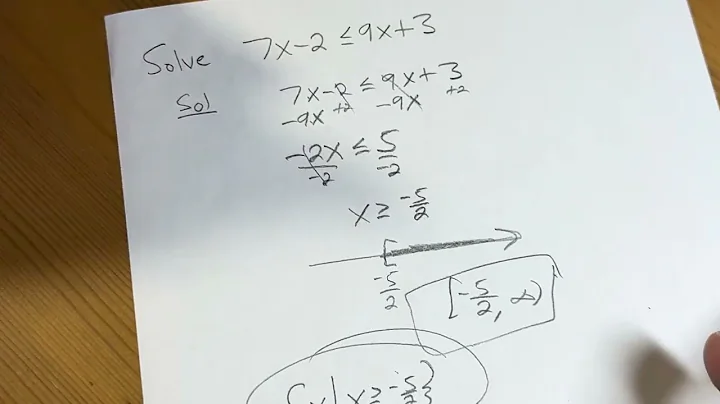 Solve 7x-2 ≤ 9x+3
Sol 7x-2 ≤ 9x+3
-9x +2 -9x +2
-2x ≤ 5
-2 -2
x ≥ -5/2
[
-5/2
[-5/2, ∞)
{x | x ≥ -5/2}